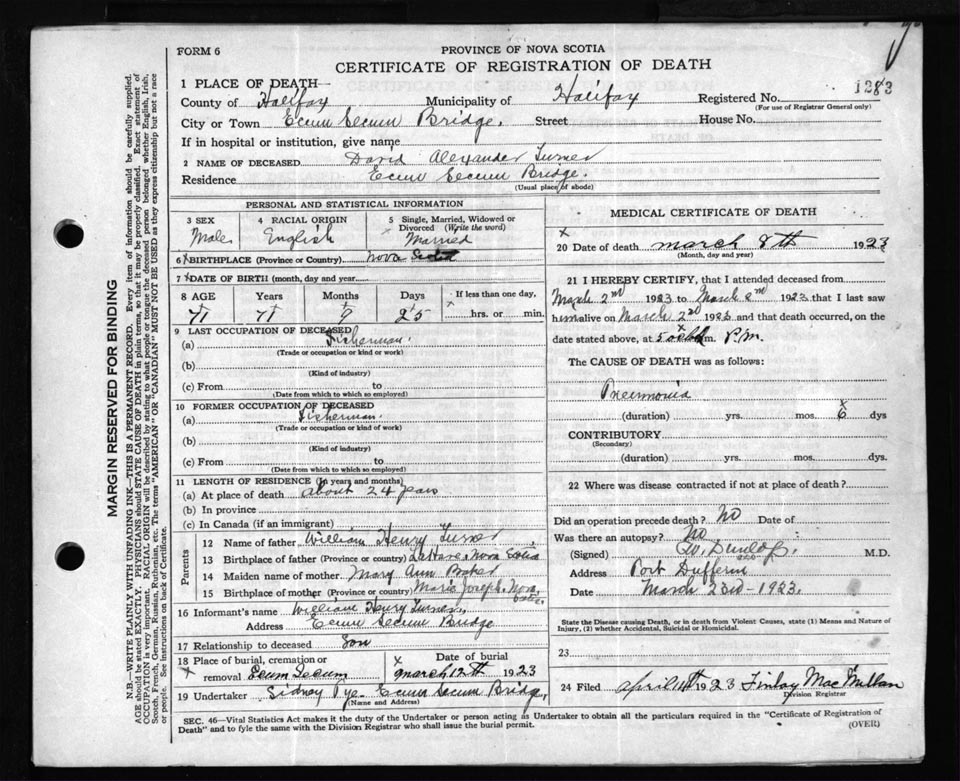 FORM 6
PROVINCE OF NOVA SCOTIA
CERTIFICATE OF REGISTRATION OF DEATH
1283
1 PLACE OF DEATH
County of Halifax Municipality of Halifax Registered No.
(For use of Registrar General only)
City or Town Ecum Secum Bridge. Street House No.
If in hospital or institution, give name
2 NAME OF DECEASED David Alexander Turner
Residence Ecum Secum Bridge.
(Usual place of abode)
MARGIN RESERVED FOR BINDING
N.B.—WRITE PLAINLY WITH UNFADING INK—THIS IS A PERMANENT RECORD. Every item of information should be carefully supplied.
AGE should be stated EXACTLY. PHYSICIANS should STATE CAUSE OF DEATH in plain terms, so that it may be properly classified. Exact statement of
OCCUPATION is very important. RACIAL ORIGIN will be described by stating to what people or tongue the deceased person belonged whether English, Irish,
Scotch, French, German, Russian, Ruthenian, etc. The terms "AMERICAN" OR "CANADIAN MUST NOT BE USED as they express citizenship but not a race
or people. See instructions on back of Certificate.
PERSONAL AND STATISTICAL INFORMATION
3 SEX
Male
4 RACIAL ORIGIN
English
5 Single, Married, Widowed or
Divorced (Write the word)
Married
6 BIRTHPLACE (Province or Country) Nova Scotia
7 DATE OF BIRTH (month, day and year)
8 AGE Years Months Days If less than one day,
71 71 9 25 hrs. or min.
9 LAST OCCUPATION OF DECEASED
(a) Fisherman.
(Trade or occupation or kind or work)
(b)
(Kind of industry)
(c) From to
(Date from which to which so employed)
10 FORMER OCCUPATION OF DECEASED
(a) Fisherman.
(Trade or occupation or kind of work)
(b)
(Kind of industry)
(c) From to
(Date from which to which so employed)
11 LENGTH OF RESIDENCE (In years and months)
(a) At place of death about 24 years
(b) In province
(c) In Canada (if an immigrant)
Parents
12 Name of father William Henry Turner
13 Birthplace of father (Province or country) LaHave, Nova Scotia
14 Maiden name of mother Mary Ann Baker
15 Birthplace of mother (Province or country) Marie Joseph, Nova Scotia.
16 Informant's name William Henry Turner,
Address Ecum Secum Bridge
17 Relationship to deceased Son
18 Place of burial, cremation or Date of burial
removal Ecum Secum March 12th 1923
19 Undertaker Sidney Pye Ecum Secum Bridge,
(Name and Address)
MEDICAL CERTIFICATE OF DEATH
20 Date of death March 8th 1923
(Month, day and year)
21 I HEREBY CERTIFY, that I attended deceased from
March 2nd 1923 to March 2nd 1923 that I last saw
him alive on March 2nd 1923 and that death occurred, on the
date stated above, at 5 m. P.M.
The CAUSE OF DEATH was as follows:
Pneumonia
(duration) yrs. mos. 6 dys
CONTRIBUTORY
(Secondary)
(duration) yrs. mos. dys
22 Where was disease contracted if not at place of death?
Did an operation precede death? No Date of
Was there an autopsy? No
(Signed) Dunlop. M.D.
Address Port Dufferin
Date March 23rd - 1923.
State the Disease causing Death, or in death from Violent Causes, state (1) Means and Nature of
Injury, (2) whether Accidental, Suicidal or Homicidal.
23
24 Filed April 1923 Finlay MacMillan
Division Registrar
SEC. 46—Vital Statistics Act makes it the duty of the Undertaker or person acting as Undertaker to obtain all the particulars required in the "Certificate of Registration of
Death" and to fyle the same with the Division Registrar who shall issue the burial permit.
(OVER)